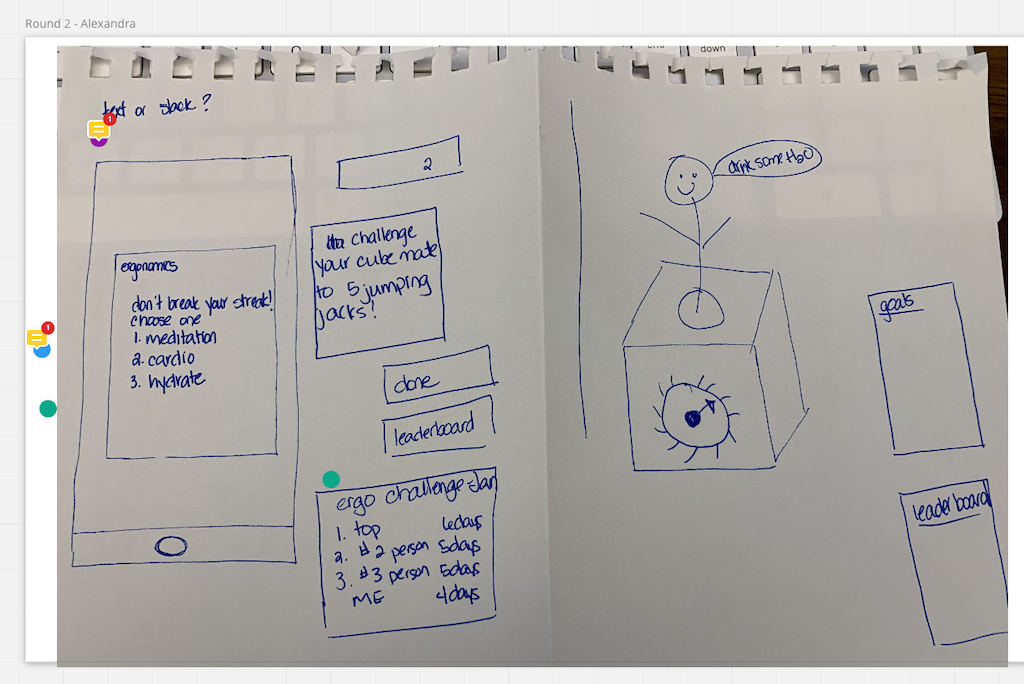 Round 2 - Alexandra
down
text or slack?
1
ergonomics
don't break your streak!
choose one
1. meditation
2. cardio
3. hydrate
1
2
challenge
your cube mate
to 5 jumping
jacks!
done
leaderboard
ergo challenge-Jan
1. top 6days
2. #2 person 5days
3. #3 person 5days
ME 4days
drink some H2O
goals
leaderboard